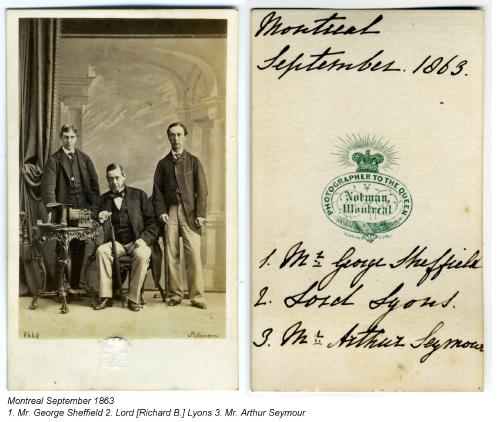 8660
Notman
Montreal
September. 1863.
PHOTOGRAPHER TO THE QUEEN
Notman,
Montreal
1. Mr. George Sheffield
2. Lord Lyons.
3. Mr. Arthur Seymour
Montreal September 1863
1. Mr. George Sheffield 2. Lord [Richard B.] Lyons 3. Mr. Arthur Seymour